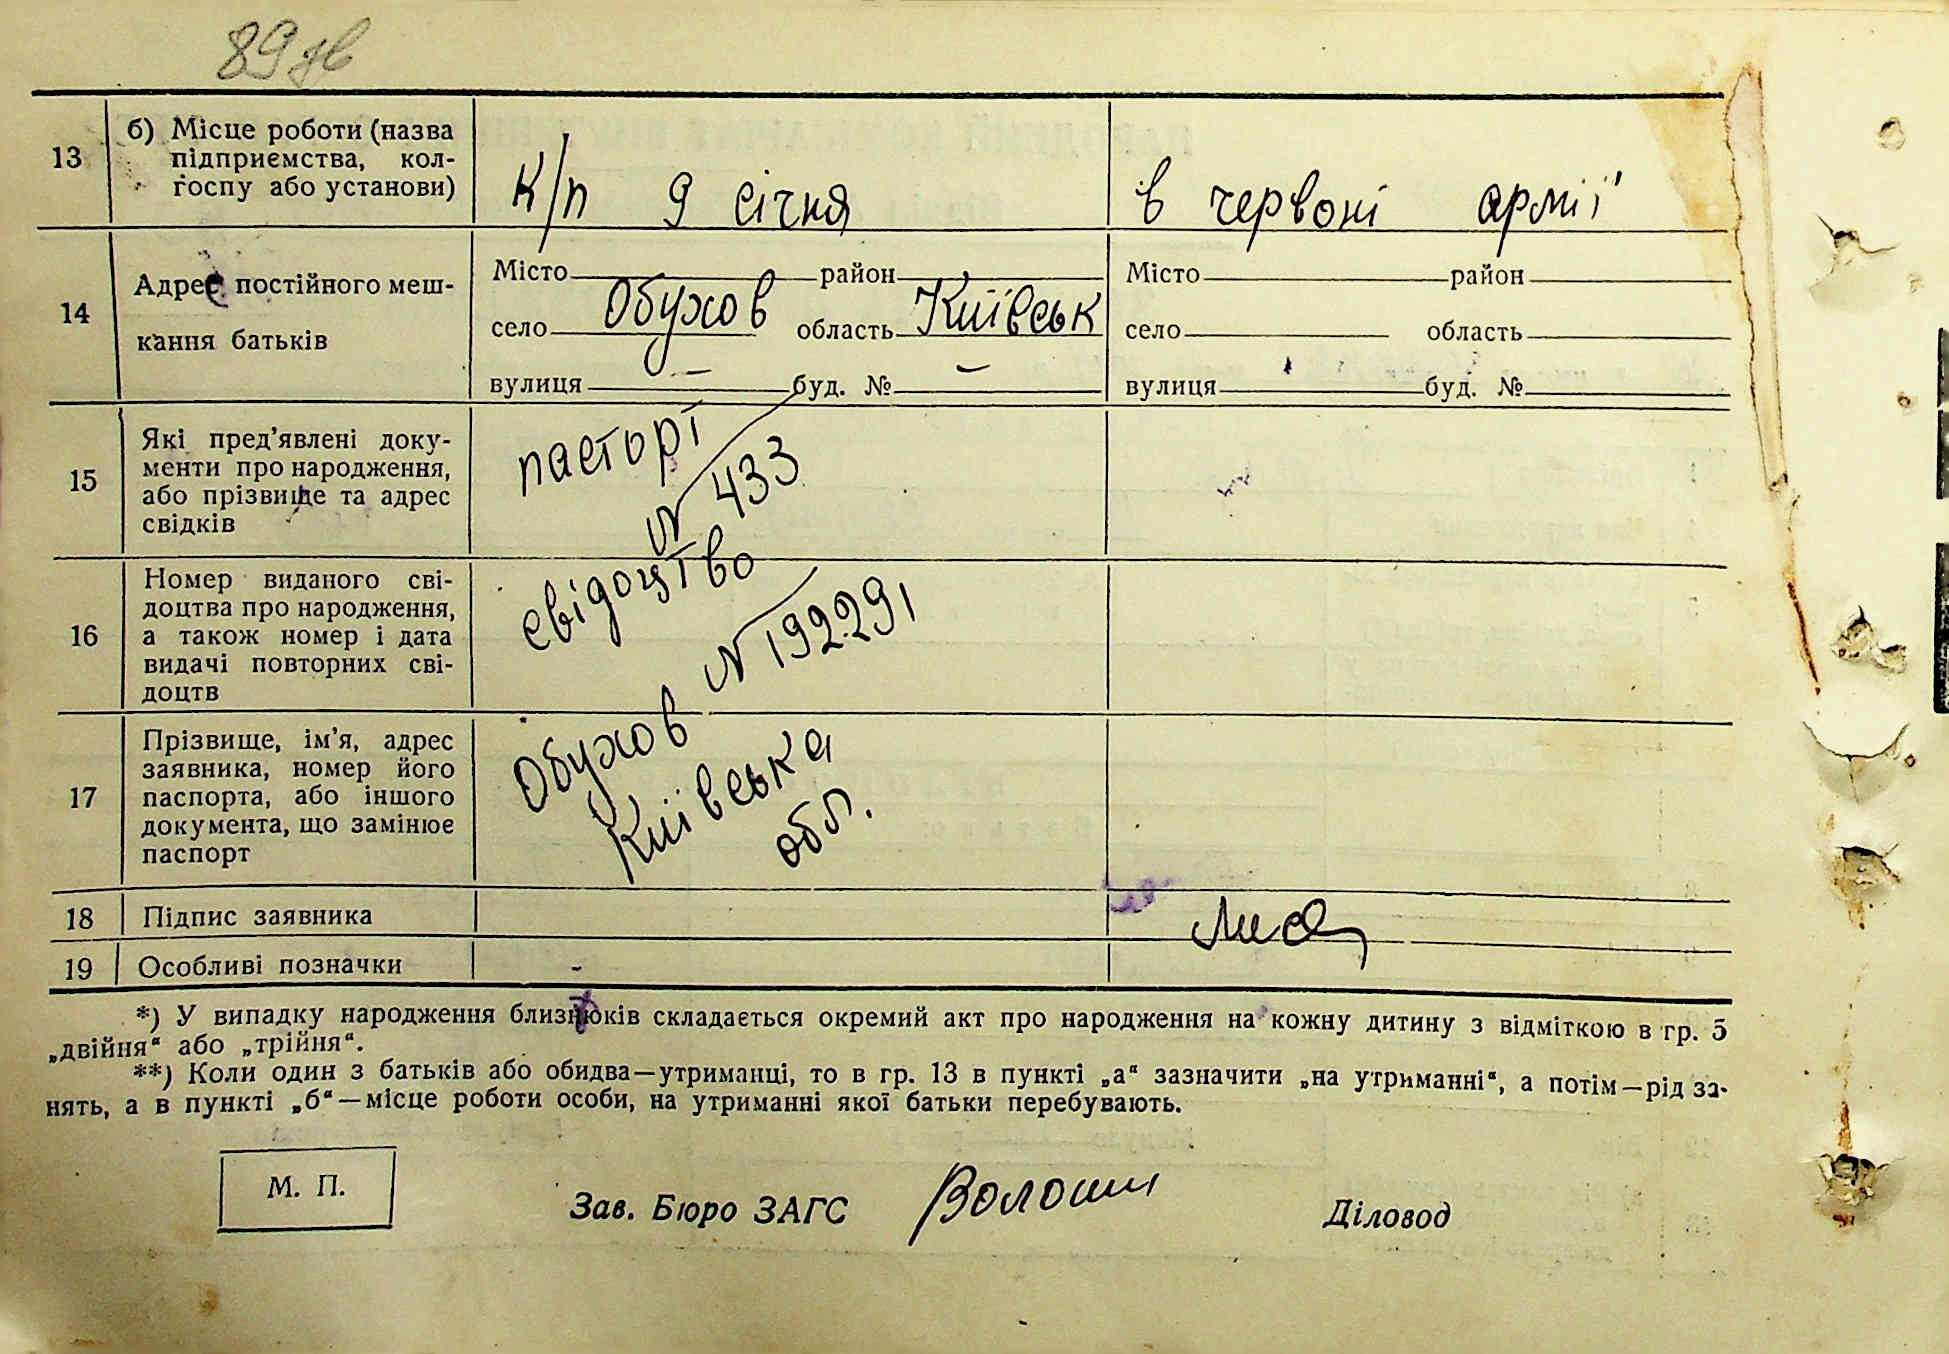 89 зв
13
б) Місце роботи (назва
підприємства, кол-
госпу або установи)
к/п 9 січня
в червоні армії
14
Адрес постійного меш-
кання батьків
Місто район
село Обухов область Київськ
вулиця — буд. № —
Місто район
село область
вулиця буд. №
15
Які пред’явлені доку-
менти про народження,
або прізвище та адрес
свідків
пасторі
№ 433
16
Номер виданого сві-
доцтва про народження,
а також номер і дата
видачі повторних сві-
доцтв
свідоцтво
№ 192291
17
Прізвище, ім’я, адрес
заявника, номер його
паспорта, або іншого
документа, що замінює
паспорт
Обухов
Київська
обл.
18 Підпис заявника
19 Особливі позначки -
*) У випадку народження близнюків складається окремий акт про народження на кожну дитину з відміткою в гр. 5
„двійня“ або „трійня“.
**) Коли один з батьків або обидва—утриманці, то в гр. 13 в пункті „а“ зазначити „на утриманні“, а потім—рід за-
нять, а в пункті „б“—місце роботи особи, на утриманні якої батьки перебувають.
М. П.
Зав. Бюро ЗАГС Волошин
Діловод